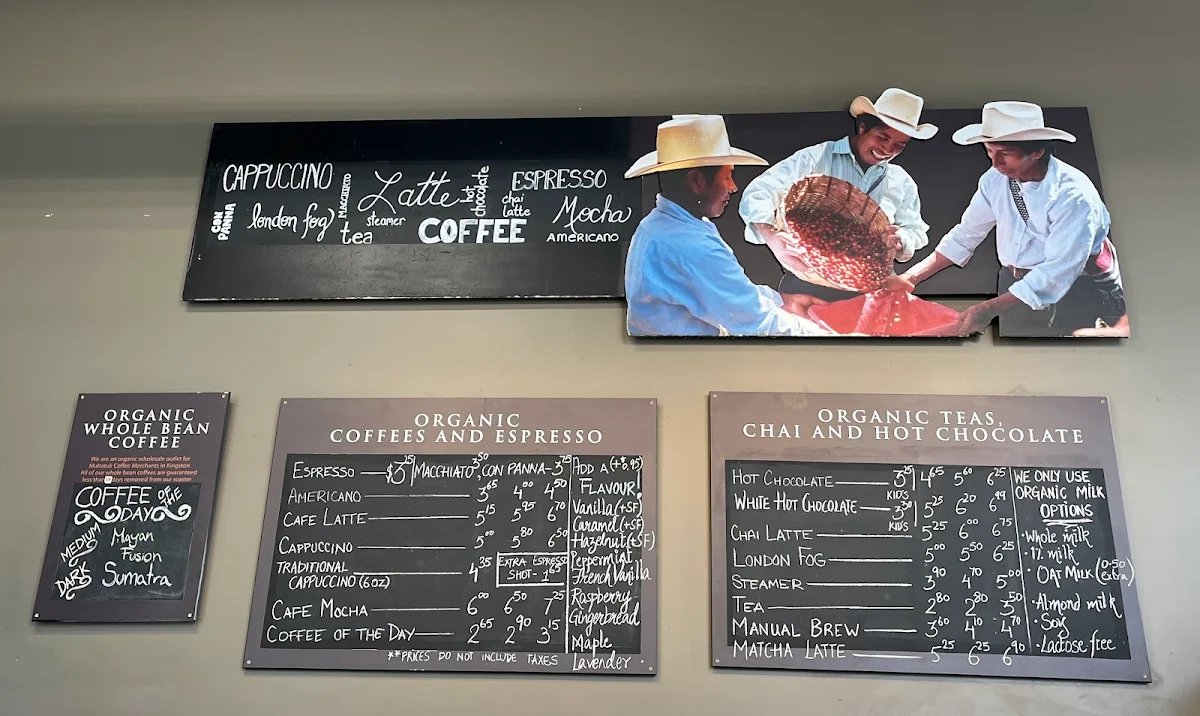 CAPPUCCINO
CON PANNA
london fog
MACCHIATO
Latte
steamer
tea
hot chocolate
COFFEE
ESPRESSO
chai latte
Mocha
AMERICANO
ORGANIC
WHOLE BEAN
COFFEE
We are an organic wholesale outlet for
Multatuli Coffee Merchants in Kingston.
All of our whole bean coffees are guaranteed
less than days removed from our roaster.
COFFEE OF THE
DAY
MEDIUM Mayan
Fusion
DARK Sumatra
ORGANIC
COFFEES AND ESPRESSO
ESPRESSO $3.25 MACCHIATO 3.50, CON PANNA - 3.75
AMERICANO 3.65 4.00 4.50
CAFE LATTE 5.15 5.95 6.70
CAPPUCCINO 5.00 5.80 6.50
TRADITIONAL
CAPPUCCINO (6oz) 4.35
EXTRA ESPRESSO
SHOT - 1.65
CAFE MOCHA 6.00 6.50 7.25
COFFEE OF THE DAY 2.65 2.90 3.15
**PRICES DO NOT INCLUDE TAXES
ADD A (+$0.95)
FLAVOUR!
Vanilla (+SF)
Caramel (+SF)
Hazelnut (+SF)
Peppermint
French Vanilla
Raspberry
Gingerbread
Maple
Lavender
ORGANIC TEAS,
CHAI AND HOT CHOCOLATE
HOT CHOCOLATE 3.25 KIDS 4.65 5.60 6.25
WHITE HOT CHOCOLATE 3.50 KIDS 5.25 6.20 6.99
CHAI LATTE 5.25 6.00 6.75
LONDON FOG 5.00 5.50 6.25
STEAMER 3.90 4.70 5.00
TEA 2.80 2.80 3.50
MANUAL BREW 3.60 4.10 4.70
MATCHA LATTE 5.25 6.25 6.90
WE ONLY USE
ORGANIC MILK
OPTIONS
• Whole milk
• 1% milk
• OAT MILK (0.50 extra)
• Almond milk
• Soy
• Lactose free